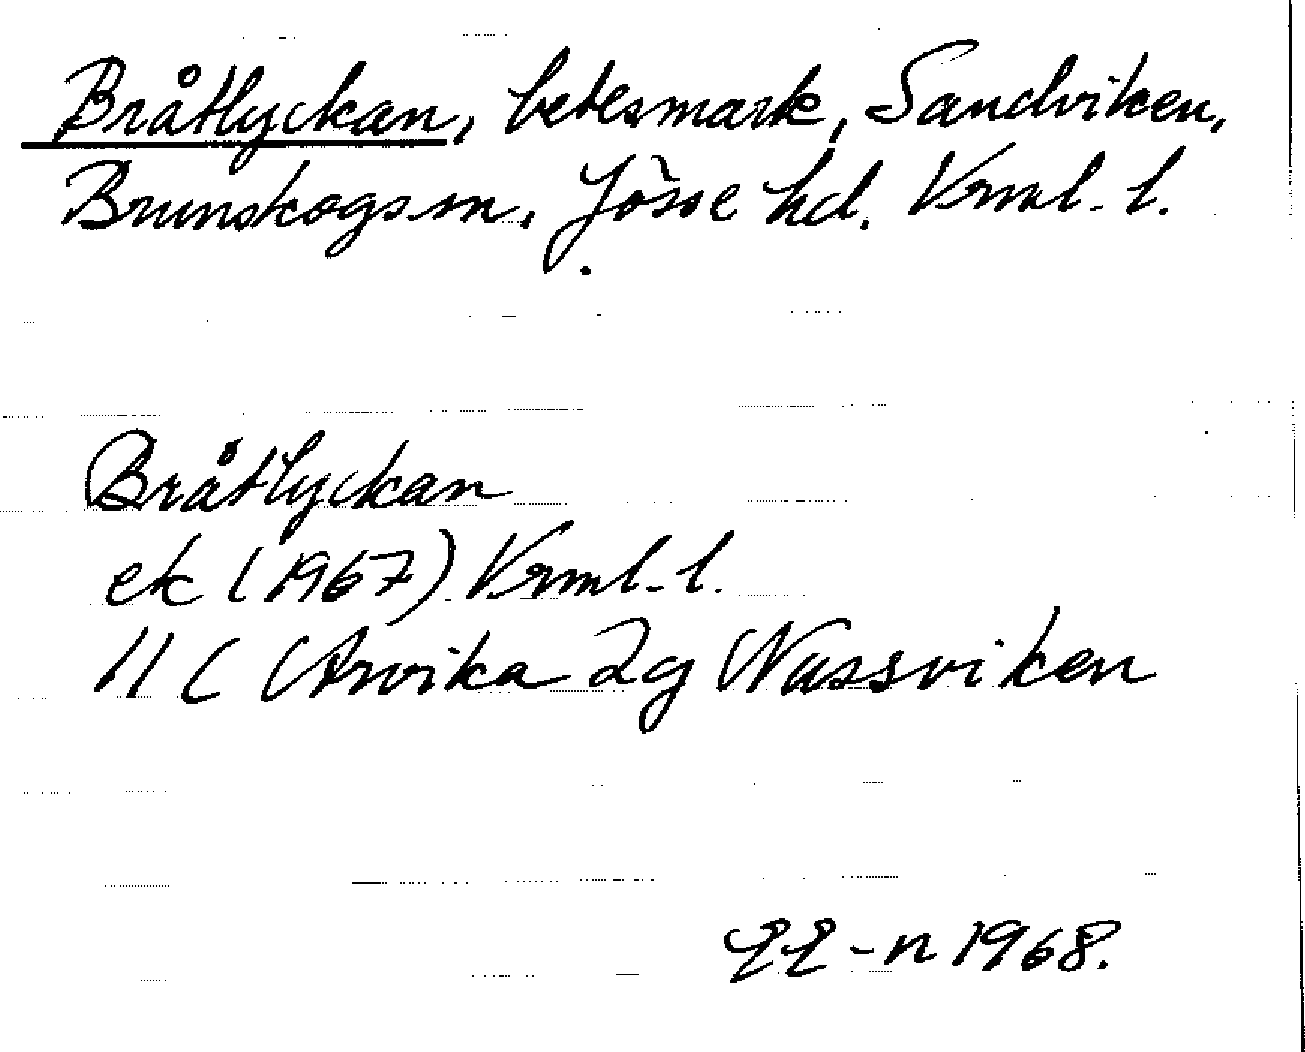 Bråtlyckan, betesmark, Sandviken,
Brunskogs sn, Jösse hd. Vrml. l.
Bråtlyckan
ek (1967) Vrml. l.
11 C Arvika 2g Nussviken
-n 1968.